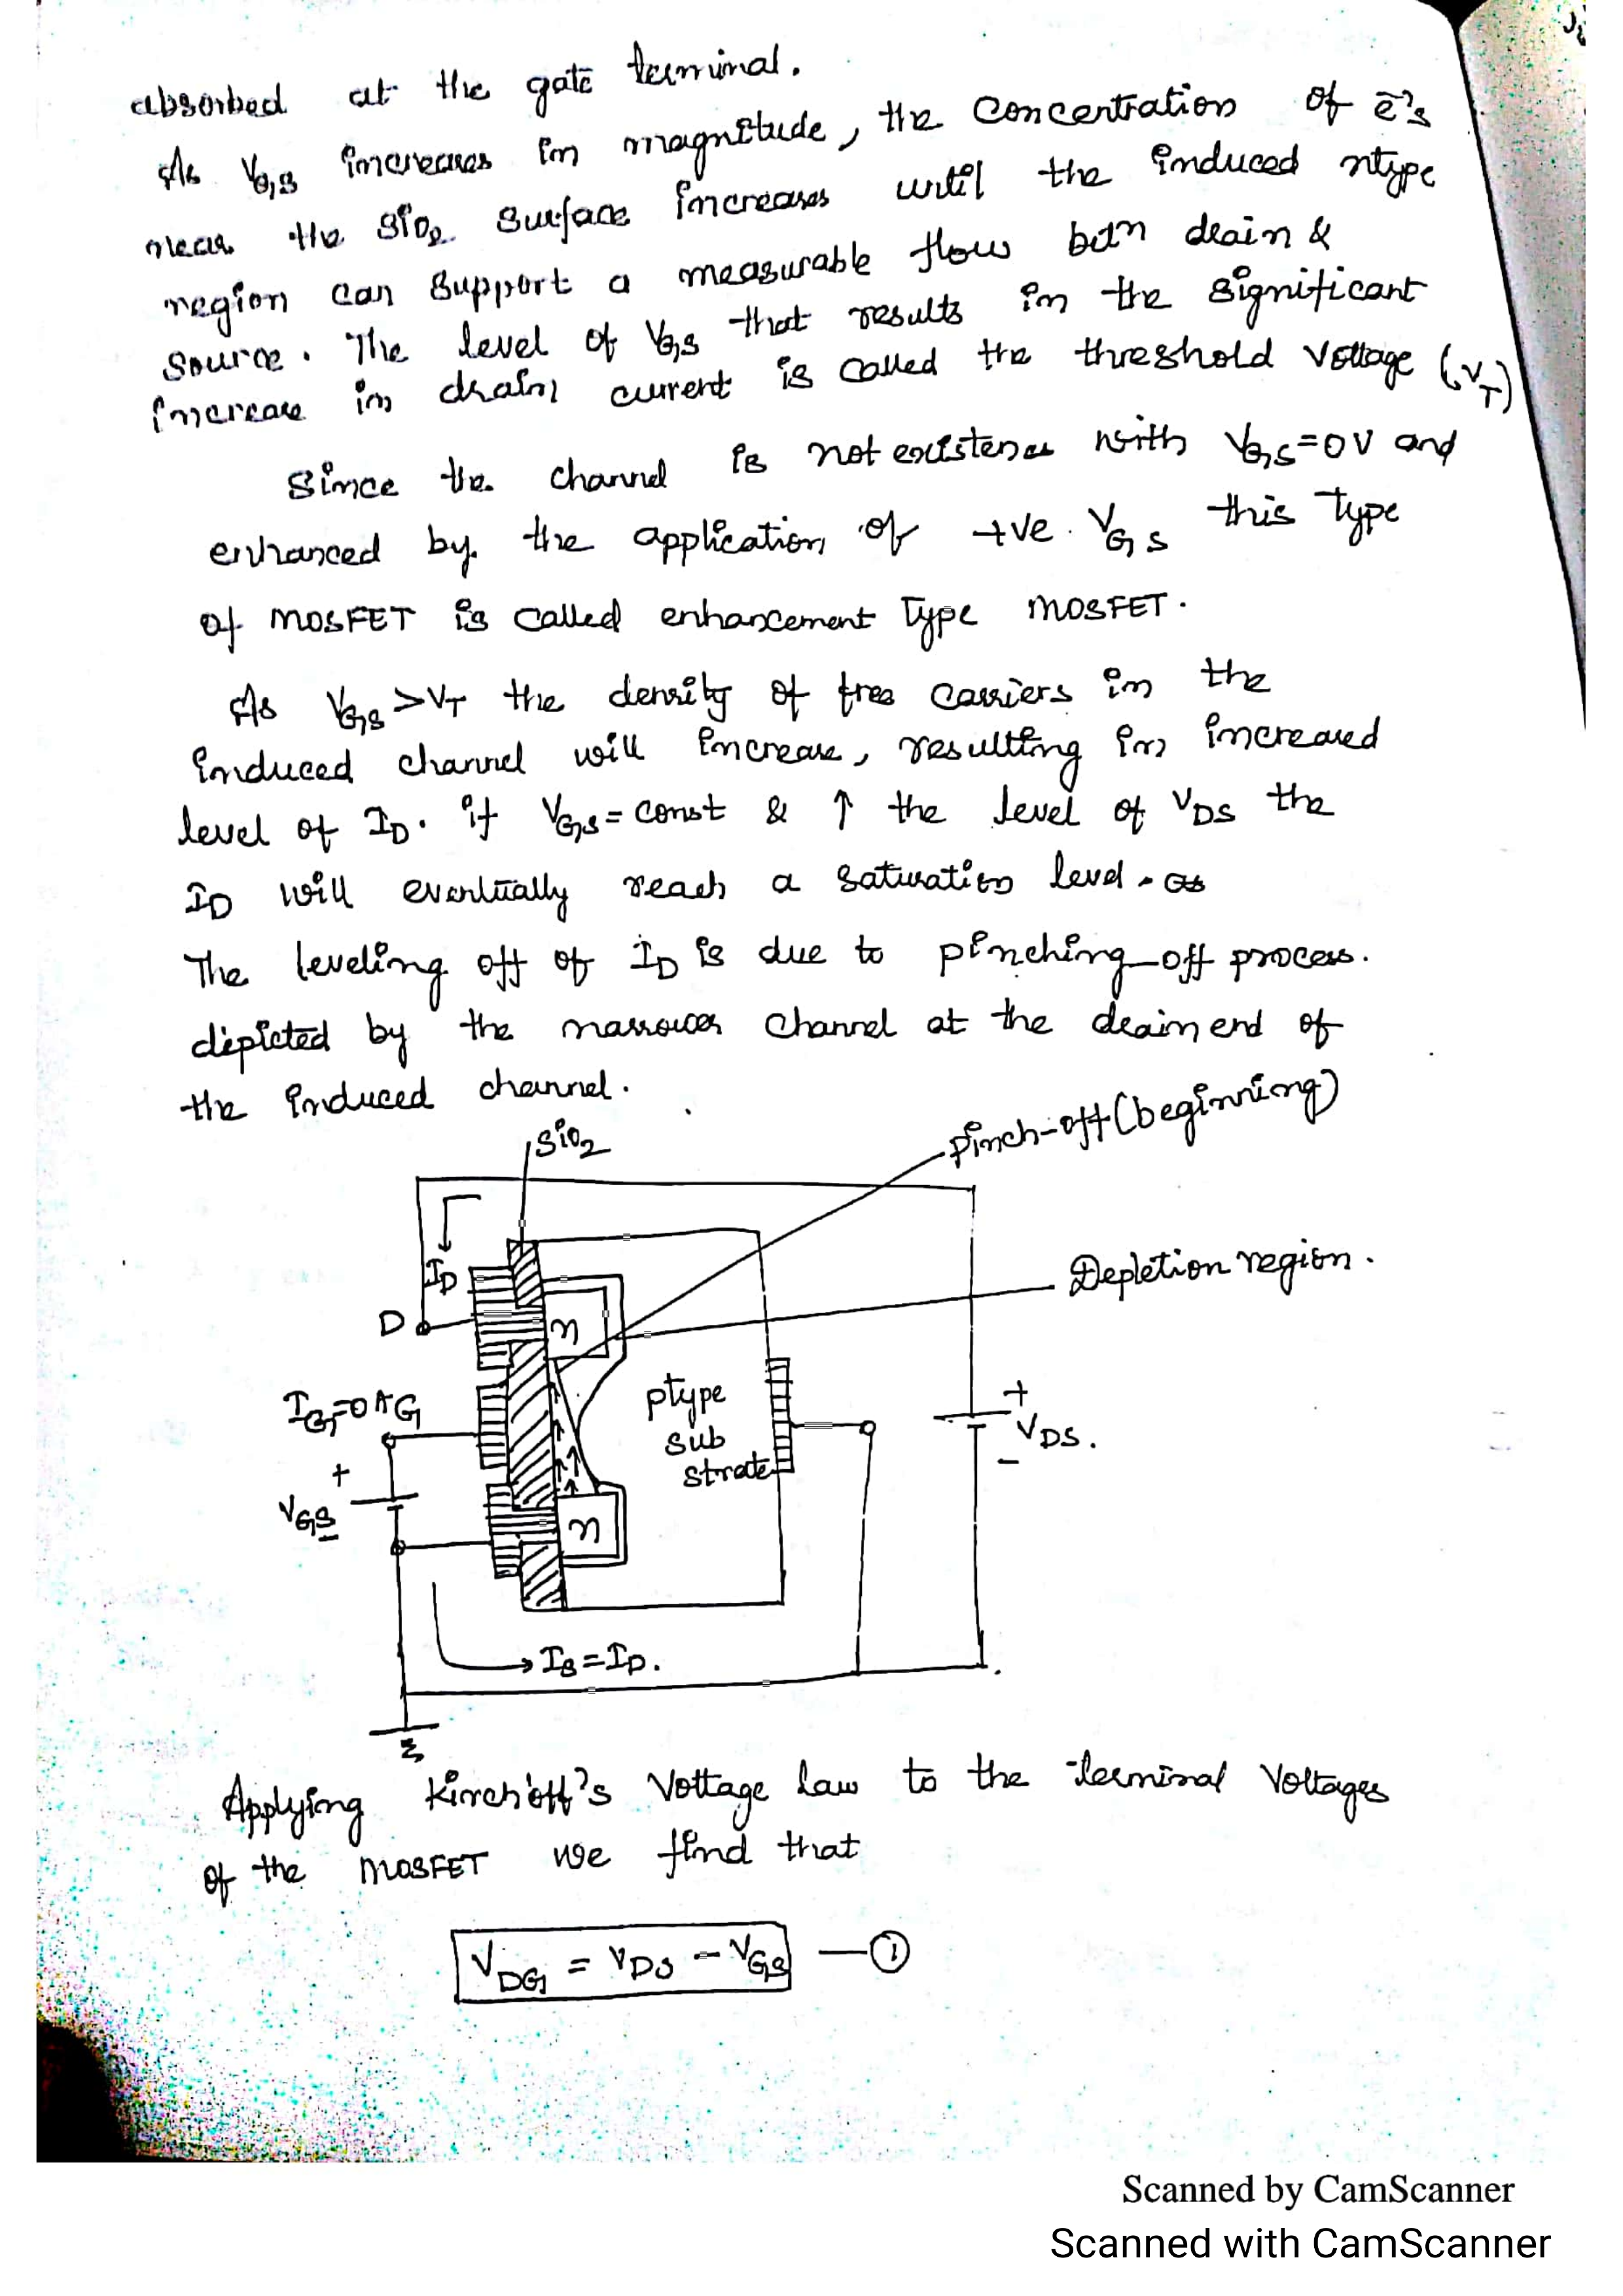 absorbed at the gate terminal.
As VGS increases in magnitude, the concentration of ē's
near the SiO2 surface increases until the induced ntype
region can support a measurable flow betn drain &
source. The level of VGS that results in the significant
increase in drain current is called the threshold voltage (VT)
Since the channel is not existence with VGS=0V and
enhanced by the application of +ve VGS this type
of MOSFET is called enhancement type MOSFET.
As VGS >VT the density of free carriers in the
induced channel will increase, resulting in increased
level of ID. if VGS = const & ↑ the level of VDS the
ID will eventually reach a saturation level. as
The leveling off of ID is due to pinching-off process.
depicted by the narrower channel at the drain end of
the induced channel.
SiO2
pinch-off (beginning)
ID
Depletion region.
D
n
IG=0A G
ptype
sub
strate
+
VDS.
-
+
VGS
-
n
IS = ID.
Applying Kirchoff's Voltage Law to the terminal Voltages
of the MOSFET we find that
VDG = VDS - VGS — 1
Scanned by CamScanner
Scanned with CamScanner